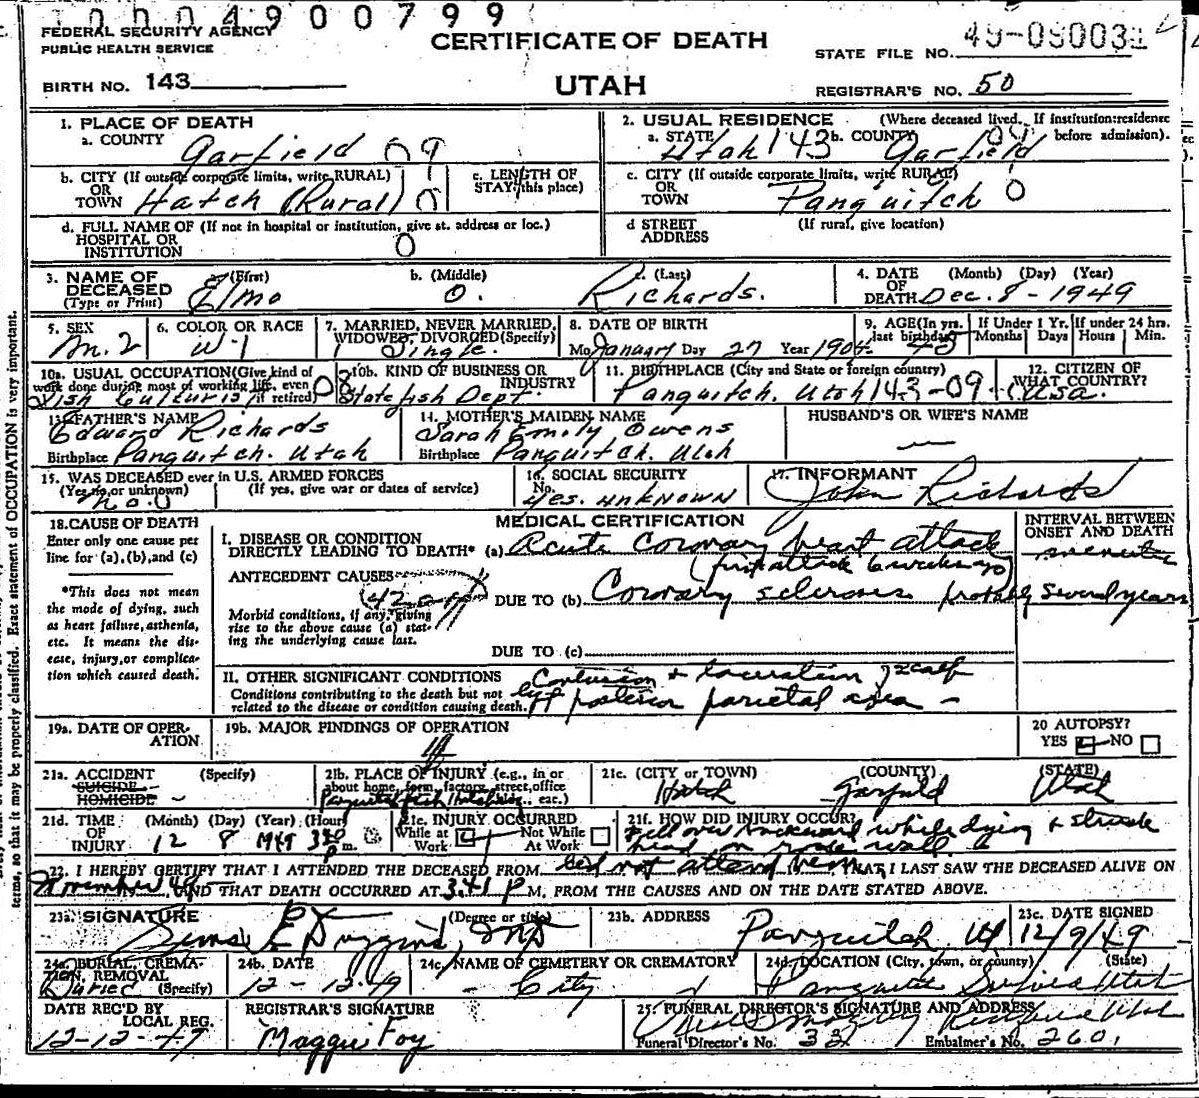 10004900799
FEDERAL SECURITY AGENCY
PUBLIC HEALTH SERVICE
CERTIFICATE OF DEATH
STATE FILE NO.
BIRTH NO. 143
UTAH
REGISTRAR'S NO. 50
1. PLACE OF DEATH
a. COUNTY Garfield 09
2. USUAL RESIDENCE (Where deceased lived. If institution:residence before admission).
a. STATE Utah 143 b. COUNTY Garfield 09
b. CITY (If outside corporate limits, write RURAL)
OR TOWN Hatch (Rural) 0
c. LENGTH OF STAY (this place)
c. CITY (If outside corporate limits, write RURAL)
OR TOWN Panguitch 0
d. FULL NAME OF (If not in hospital or institution, give st. address or loc.)
HOSPITAL OR INSTITUTION 0
d STREET ADDRESS (If rural, give location)
3. NAME OF DECEASED (Type or Print)
a. (First) Elmo
b. (Middle) O.
c. (Last) Richards.
4. DATE OF DEATH (Month) (Day) (Year) Dec. 8 - 1949
5. SEX M. 2
6. COLOR OR RACE W-1
7. MARRIED, NEVER MARRIED, WIDOWED, DIVORCED (Specify) 1 Single.
8. DATE OF BIRTH
Mo January Day 27 Year 1904
9. AGE (In yrs. last birthday)
If Under 1 Yr. Months Days
If under 24 hrs. Hours Min.
10a. USUAL OCCUPATION (Give kind of work done during most of working life, even if retired) Fish Culturist
10b. KIND OF BUSINESS OR INDUSTRY State fish Dept.
11. BIRTHPLACE (City and State or foreign country) Panguitch, Utah 143-09
12. CITIZEN OF WHAT COUNTRY? USA.
13. FATHER'S NAME Edward Richards
Birthplace Panguitch. Utah
14. MOTHER'S MAIDEN NAME Sarah Emily Owens
Birthplace Panguitch. Utah
HUSBAND'S OR WIFE'S NAME —
15. WAS DECEASED ever in U.S. ARMED FORCES
(Yes, no, or unknown) (If yes, give war or dates of service)
No. 0
16. SOCIAL SECURITY No. Yes. unknown
17. INFORMANT John Richards
18. CAUSE OF DEATH
Enter only one cause per line for (a), (b), and (c)
*This does not mean the mode of dying, such as heart failure, asthenia, etc. It means the disease, injury, or complication which caused death.
MEDICAL CERTIFICATION
I. DISEASE OR CONDITION DIRECTLY LEADING TO DEATH* (a) Acute Coronary heart attack
(first attack 6 weeks ago)
INTERVAL BETWEEN ONSET AND DEATH
minutes
ANTECEDENT CAUSES
Morbid conditions, if any, giving rise to the above cause (a) stating the underlying cause last.
DUE TO (b) Coronary sclerosis probably several years
DUE TO (c)
II. OTHER SIGNIFICANT CONDITIONS
Conditions contributing to the death but not related to the disease or condition causing death.
Contusion + laceration of scalp
left posterior parietal area -
19a. DATE OF OPERATION
19b. MAJOR FINDINGS OF OPERATION
20 AUTOPSY?
YES NO
21a. ACCIDENT (Specify)
SUICIDE
HOMICIDE -
21b. PLACE OF INJURY (e.g., in or about home, farm, factory, street, office bldg., etc.)
Panguitch fish Hatchery
21c. (CITY or TOWN) (COUNTY) (STATE)
Hatch Garfield Utah
21d. TIME OF INJURY (Month) (Day) (Year) (Hour)
12 8 1949 3:30 P m.
21e. INJURY OCCURRED
While at Work Not While At Work
21f. HOW DID INJURY OCCUR?
Fell over backward while dying & struck
head on rock wall
22. I HEREBY CERTIFY THAT I ATTENDED THE DECEASED FROM did not attend him THAT I LAST SAW THE DECEASED ALIVE ON
November 49 AND THAT DEATH OCCURRED AT 3:41 P M, FROM THE CAUSES AND ON THE DATE STATED ABOVE.
23a. SIGNATURE (Degree or title)
Sims E Duggins, MD
23b. ADDRESS Panguitch, Ut
23c. DATE SIGNED 12/9/49
24a. BURIAL, CREMATION, REMOVAL (Specify) Buried
24b. DATE 12-12-49
24c. NAME OF CEMETERY OR CREMATORY City
24d. LOCATION (City, town, or county) (State)
Panguitch Utah
DATE REC'D BY LOCAL REG. 12-12-49
REGISTRAR'S SIGNATURE
Maggie Foy
25. FUNERAL DIRECTOR'S SIGNATURE AND ADDRESS
Richfield Utah
Funeral Director's No. Embalmer's No. 260